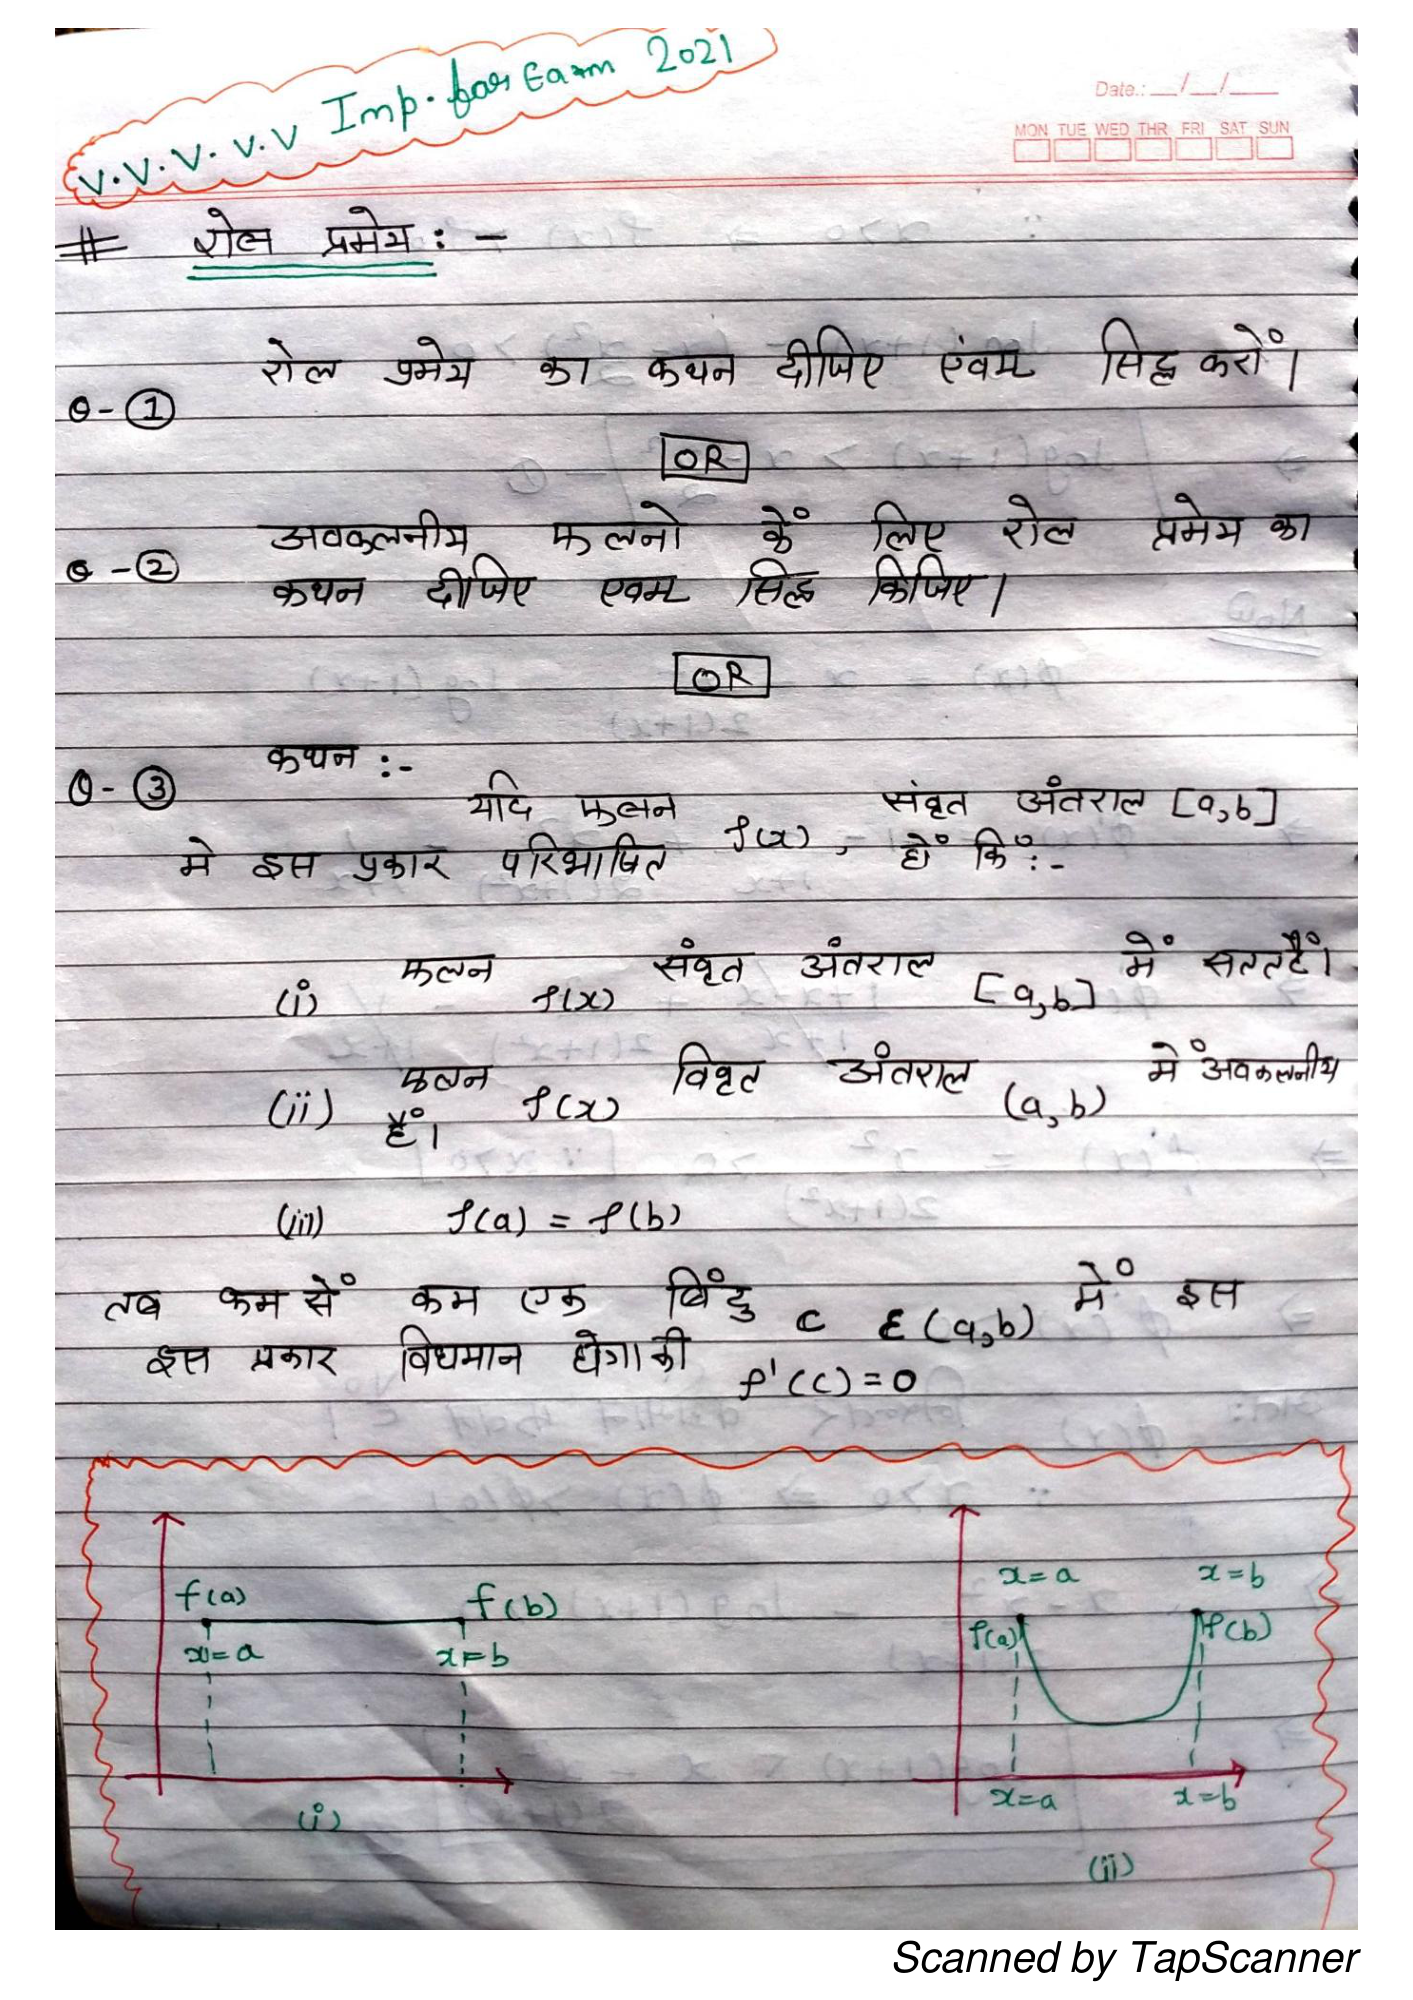 V.V.V.V.V Imp. for Exam 2021
Date.: __/__/__
MON TUE WED THR FRI SAT SUN
# रोल प्रमेय : -
रोल प्रमेय का कथन दीजिए एंवम सिद्ध करों।
Q-①
OR
अवकलनीय फलनो कें लिए रोल प्रमेय का
Q-②
कथन दीजिए एवम सिद्ध किजिए।
OR
कथन :-
Q-③
यदि फलन f(x), संवृत अंतराल [a,b]
मे इस प्रकार परिभाषित हों कि :-
(i) फलन f(x) संवृत अंतराल [a,b] में सततहैं।
(ii) फलन f(x) विवृत अंतराल (a,b) में अवकलनीय
हैं।
(iii) f(a) = f(b)
तब कम सें कम एक बिंदु c ε (a,b) में इस
इस प्रकार विधमान होगा की f'(c)=0
f(a) f(b)
x=a x=b
(i)
x=a x=b
f(a) f(b)
x=a x=b
(ii)
Scanned by TapScanner